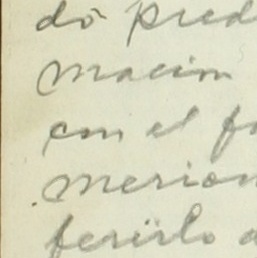 dō pred
macion
con el fo
merion
ferirlo a